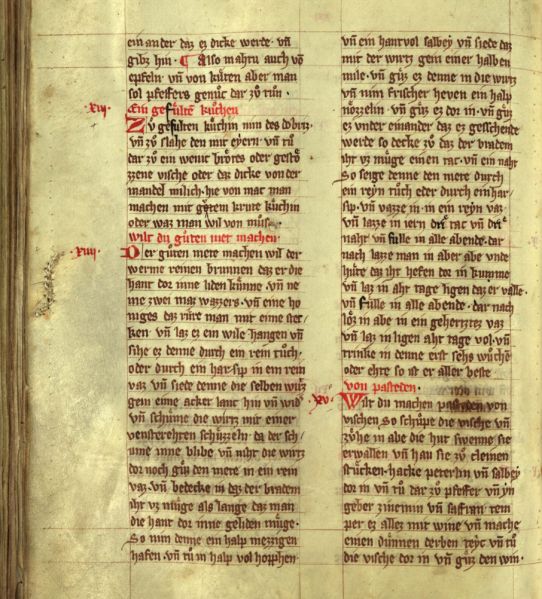 ein ander daz ez dicke werde· vn̄
gibz hin· ¶ Also mahtu auch vō
epfeln· vn̄ von kuͤten aber man
sol pfeffers genuͤc dar zuͦ tuͦn·
·xiii· Ein gefuͤlte kuͦchen
Zv gefulten kuͦchin nim des doͤbrtz·
vn̄ zuͦ slahe den mit eyern· vn̄ tuͦ
dar zuͦ ein wenic broͤtes oder gestoͤ
zzene vische oder daz dicke von der
mandel milich· hie von mac man
machen mit guͦtem krute kuͦchin
oder waz man wil von muͦse·
Wilt du guͦten met machen·
·xiiii· Der guͦten mete machen wil der
werme reinen brunnen daz er die
hant dor inne liden kuͤnne· vn̄ ne
me zwei maz wazzers· vn̄ eine ho
niges daz ruͤre man mit eime stec
ken· vn̄ laz ez ein wile hangen vn̄
sihe ez denne durch ein rein tuͦch·
oder durch ein har sip in ein rein
vaz· vn̄ siede denne die selben wirtz
gein eime acker lanc hin vn̄ wid͛
vn̄ schuͦme die wirtz mit einer
venstererehten schuͤzzeln· da der sch/
ume inne blibe· vn̄ niht die wirtz
dor noch guͤz den mete in ein rein
vaz· vn̄ bedecke in daz der bradem
iht vz muͤge als lange daz man
die hant dor inne geliden muͤge·
So nim denne ein halp mezzigen
hafen· vn̄ tuͦ in halp vol hopphen·
vn̄ ein hantvol salbey vn̄ siede daz
mit der wirtz gein einer halben
mile· vn̄ guͤz ez denne in die wirtz
vn̄ nim frischer heven ein halp
noͤzzelin· vn̄ guͤz ez dor in· vn̄ guͤz
ez vnter einander daz ez gesschende
werde so decke zuͦ daz der bradem
iht vz muͤge einen tac· vn̄ ein naht
So seige denne den mere durch
ein reyn tuͦch oder durch ein har/
sip· vn̄ vazze in· in ein reyn vaz·
vn̄ lazze in iern drie tac vn̄ drie
nahr vn̄ fuͤlle in alle abende· dar
nach lazze man in aber abe vnde
huͤte daz iht hefen dor in kumme
vn̄ laz in aht tage ligen daz er valle·
vn̄ fuͤlle in alle abende· dar nach
loͤz in abe in ein gehertztez vaz
vn̄ laz in ligen aht tage vol· vn̄
trinke in denne erst sehs wuͦchē
oder ehte so ist er aller beste
von pasteden·
·xv· Wilt du machen pasteden von
vischen· So schuͤpe die vische· vn̄
zuͤhe in abe die hut swenne sie
erwallen vn̄ hau sie zuͦ cleinen
stuͤcken· hacke peterlin vn̄ salbey
dor in· vn̄ tuͦ dar zuͦ pfeffer vn̄ yn
geber zinemin vn̄ saffran· tem
per ez allez mit wine vn̄ mache
einen duͤnnen derben teyc vn̄ tuͦ
die vische dor in vn̄ guͤz den win·